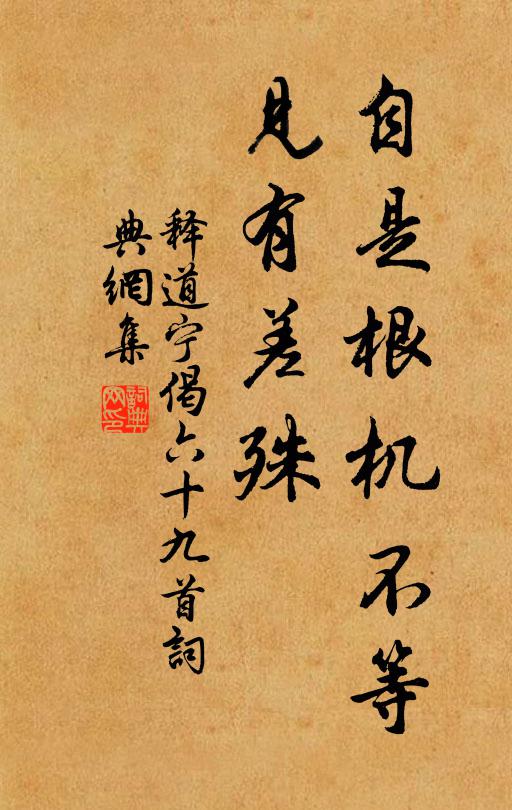 自是根机不等
见有差殊
释道宁偈六十九首詞
典網集
詞典
网印